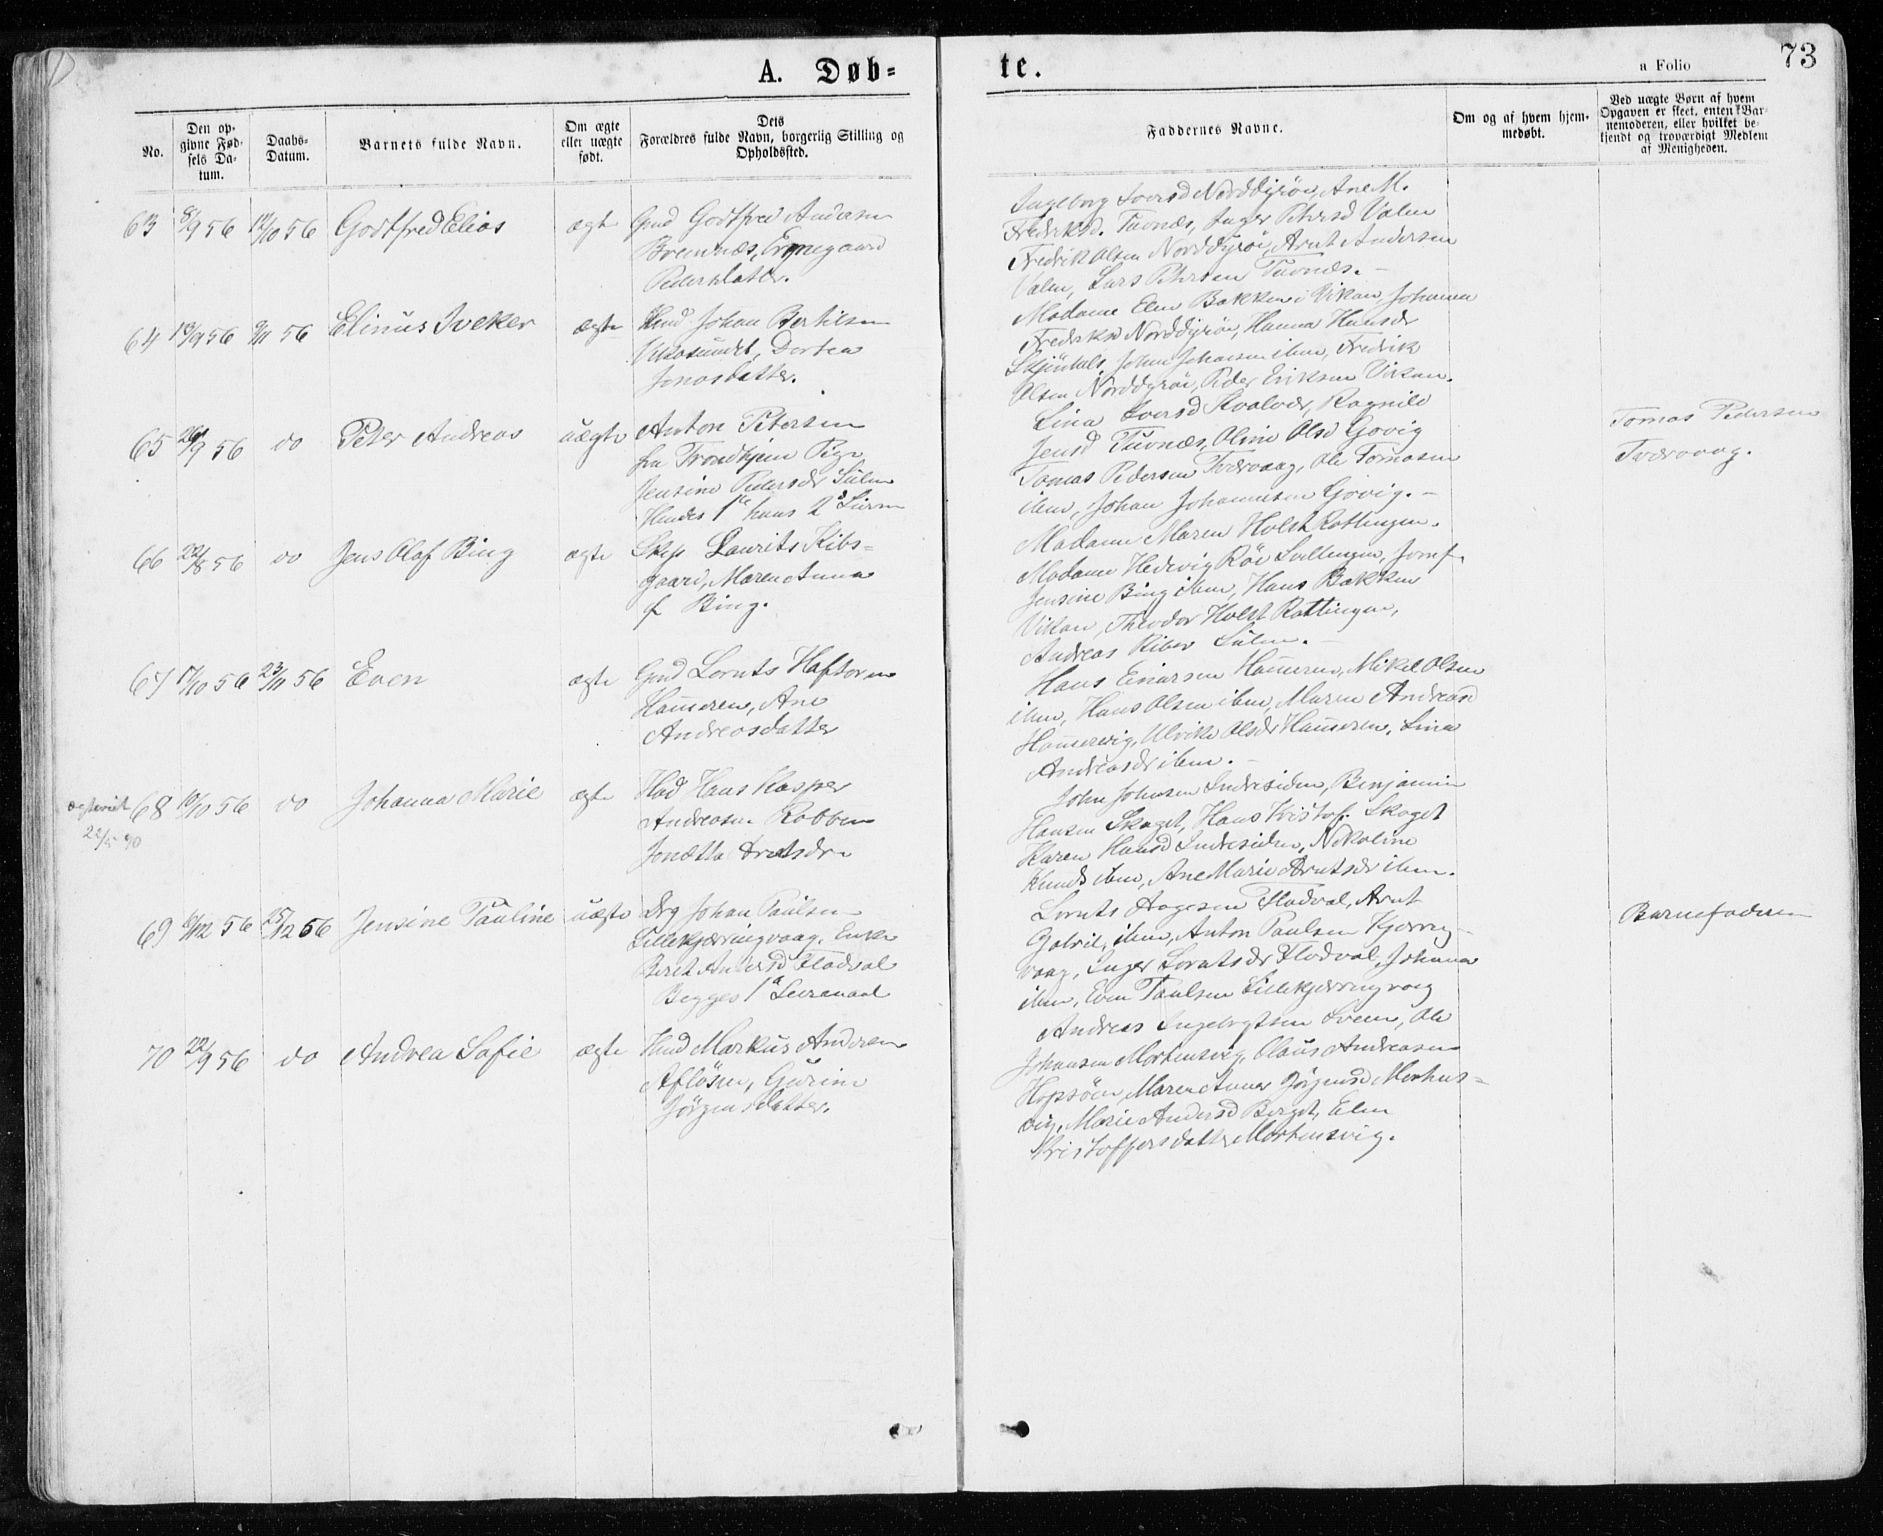 A. Døb=
te.
a Folio
73
No.
Den op-
givne Fød-
sels Da-
tum.
Daabs-
Datum.
Barnets fulde Navn.
Om ægte
eller uægte
født.
Dets
Forældres fulde Navn, borgerlig Stilling og
Opholdssted.
Faddernes Navne.
Om og af hvem hjem-
medøbt.
Ved uægte Børn af hvem
Opgaven er skeet, enten Bar-
nemoderen, eller hvilket be-
kjendt og troværdigt Medlem
af Menigheden.
63 8/9 56 12/10 56 Godtfred Elias ægte Gmd Godtfred Andersen
Bremnæs, Ermegaard
Pedersdatter.
Ingeborg Iversd Norddyrøi, Ane M.
Fredriksd. Tuvnæs, Inger Petersd Valen
Fredrik Olsen Norddyrøi, Arnt Andersen
Valen, Lars Petersen Tuvnæs.-
64 13/9 56 9/11 56 Elinus Iveker ægte Hmd Johan Bertilsen
Ulvøsundet, Dortea
Jonasdatter.
Madame Elen Bakken i Vikan, Johanna
Fredriksd Norddyrøi, Hanna Hansdr
Skjintels, Johan Johansen ibm, Fredrik
Olsen Norddyrøi, Peder Eriksen Vikan.
65 26/9 56 do Peter Andreas uægte Anton Petersen
fra Trondhjem Pige
Jensine Pedersdr Sulen
Hendes 1te hans 2d Leierm
Lina Iversd Kvalvær, Ragnild
Jensd Tuvnæs, Oline Olsd Gjøvig
Tomas Pedersen Tværvaag, Ole Tomasen
ibm, Johan Johannesen Gjøvig.-
Tomas Pedersen
Tværvaag.
66 22/8 56 do Jens Olaf Bing ægte Skip Laurits Kibs=
gaard, Maren Anna
f Bing.
Madame Maren Holst Rottingen.
Madame Hedevig Røe Sulleungen, Jomf.
Jensine Bing ibm, Hans Bakken
Vikan, Theodor Holst Rottingen,
Andreas Riber Sulen.-
67 17/10 56 23/11 56 Even ægte Gmd Lornts Haftorsen
Hameren, Ane
Andreasdatter
Hans Einarsen Hameren, Mikal Olsen
ibm, Hans Olsen ibm, Maren Andreasd
Hamervig, Ulrike Olsdr Hameren, Lina
Andreasdr ibm.-
22/5 90
68 10/10 56 do Johanna Marie ægte Hmd Hans Kasper
Andreasen Robben
Jonætta Arntsdr
John Johnsen Indresiden, Benjamin
Hansen Skaget, Hans Kristof. Skaget
Karen Hansd Indresiden, Nikoline
Knuds ibm, Ane Marie Arntsdr ibm.
69 6/12 56 25/12 56 Jensine Pauline uægte Drg Johan Paulsen
Lillekjerringvaag, Enke
Beret Andersd Fladval
Begges 1te Leiermaal
Lornts Aagesen Fladval, Arnt
Gabriel, ibm, Anton Paulsen Kjerring-
vaag, Inger Lorntsdr Fladval, Johanna
ibm, Even Paulsen Lillekjerringvaag
Barnefaderen
70 22/9 56 do Andrea Sofie ægte Hmd Markus Andersen
Afløsen, Gurine
Jørgensdatter.
Andreas Ingebrigtsen Sveen, Ole
Johansen Mortensvig, Olaus Andreasen
Hopsøen, Maren Anna Jørgensd Morten=
vig, Marie Andersd Berget, Elen
Kristoffersdatter Mortensvig.